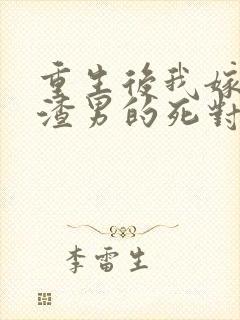 重生後我嫁
渣男的死對
李雷生